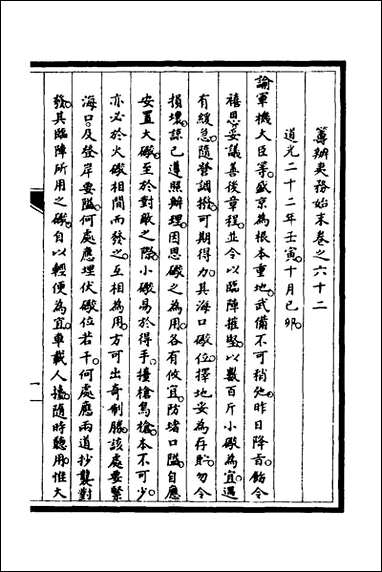 籌辦夷務始末卷之六十二
道光二十二年壬寅十月己卯
諭軍機大臣等盛京為根本重地武備不可稍弛昨日降旨飭令
禧恩妥議善後章程並令以臨陣摧堅以數百斤小礮為宜遇
有緩急隨營調撥可期得力其海口礮位擇地妥為存貯勿令
損壞諒已遵照辦理因思礮之為用各有攸宜防堵口隘自應
安置大礮至於對敵之際小礮易於得手擡槍鳥槍本不可少
亦必於火礮相間而發之互相為用方可出奇制勝該處要緊
海口及登岸要隘何處應埋伏礮位若干何處應兩道抄襲對
發其臨陣所用之礮自以輕便為宜車載人擡隨時聽用惟大
一